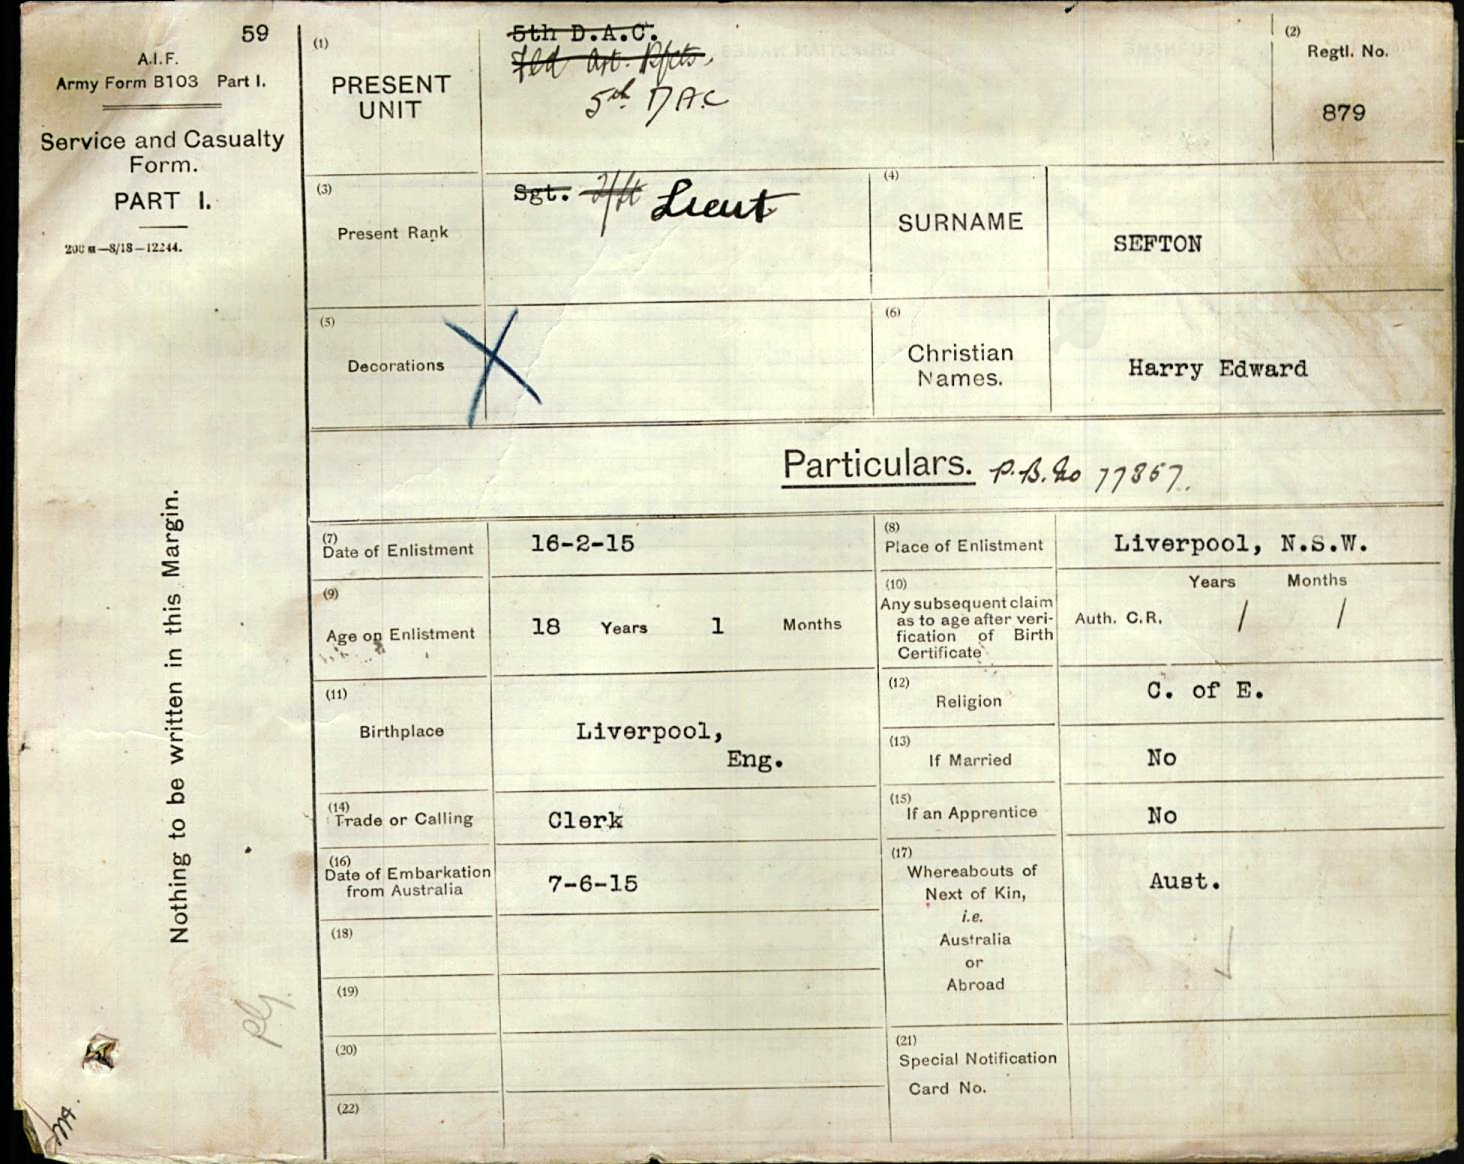 59
A.I.F.
Army Form B103 Part I.
Service and Casualty
Form.
PART I.
200 M—8/18—12244.
Nothing to be written in this Margin.
(1)
PRESENT
UNIT
5th D.A.C.
Fld Art. Rfcts.
5th DAC
(2)
Regtl. No.
879
(3)
Present Rank
Sgt. 2/Lt Lieut
(4)
SURNAME
SEFTON
(5)
Decorations
X
(6)
Christian
Names.
Harry Edward
Particulars. P.B. No 77867.
(7)
Date of Enlistment
16-2-15
(8)
Place of Enlistment
Liverpool, N.S.W.
(9)
Age on Enlistment
18 Years 1 Months
(10)
Any subsequent claim
as to age after veri-
fication of Birth
Certificate
Years Months
Auth. C.R. / /
(11)
Birthplace
Liverpool,
Eng.
(12)
Religion
C. of E.
(13)
If Married
No
(14)
Trade or Calling
Clerk
(15)
If an Apprentice
No
(16)
Date of Embarkation
from Australia
7-6-15
(17)
Whereabouts of
Next of Kin,
i.e.
Australia
or
Abroad
Aust.
(18)
(19)
(20)
(21)
Special Notification
Card No.
(22)